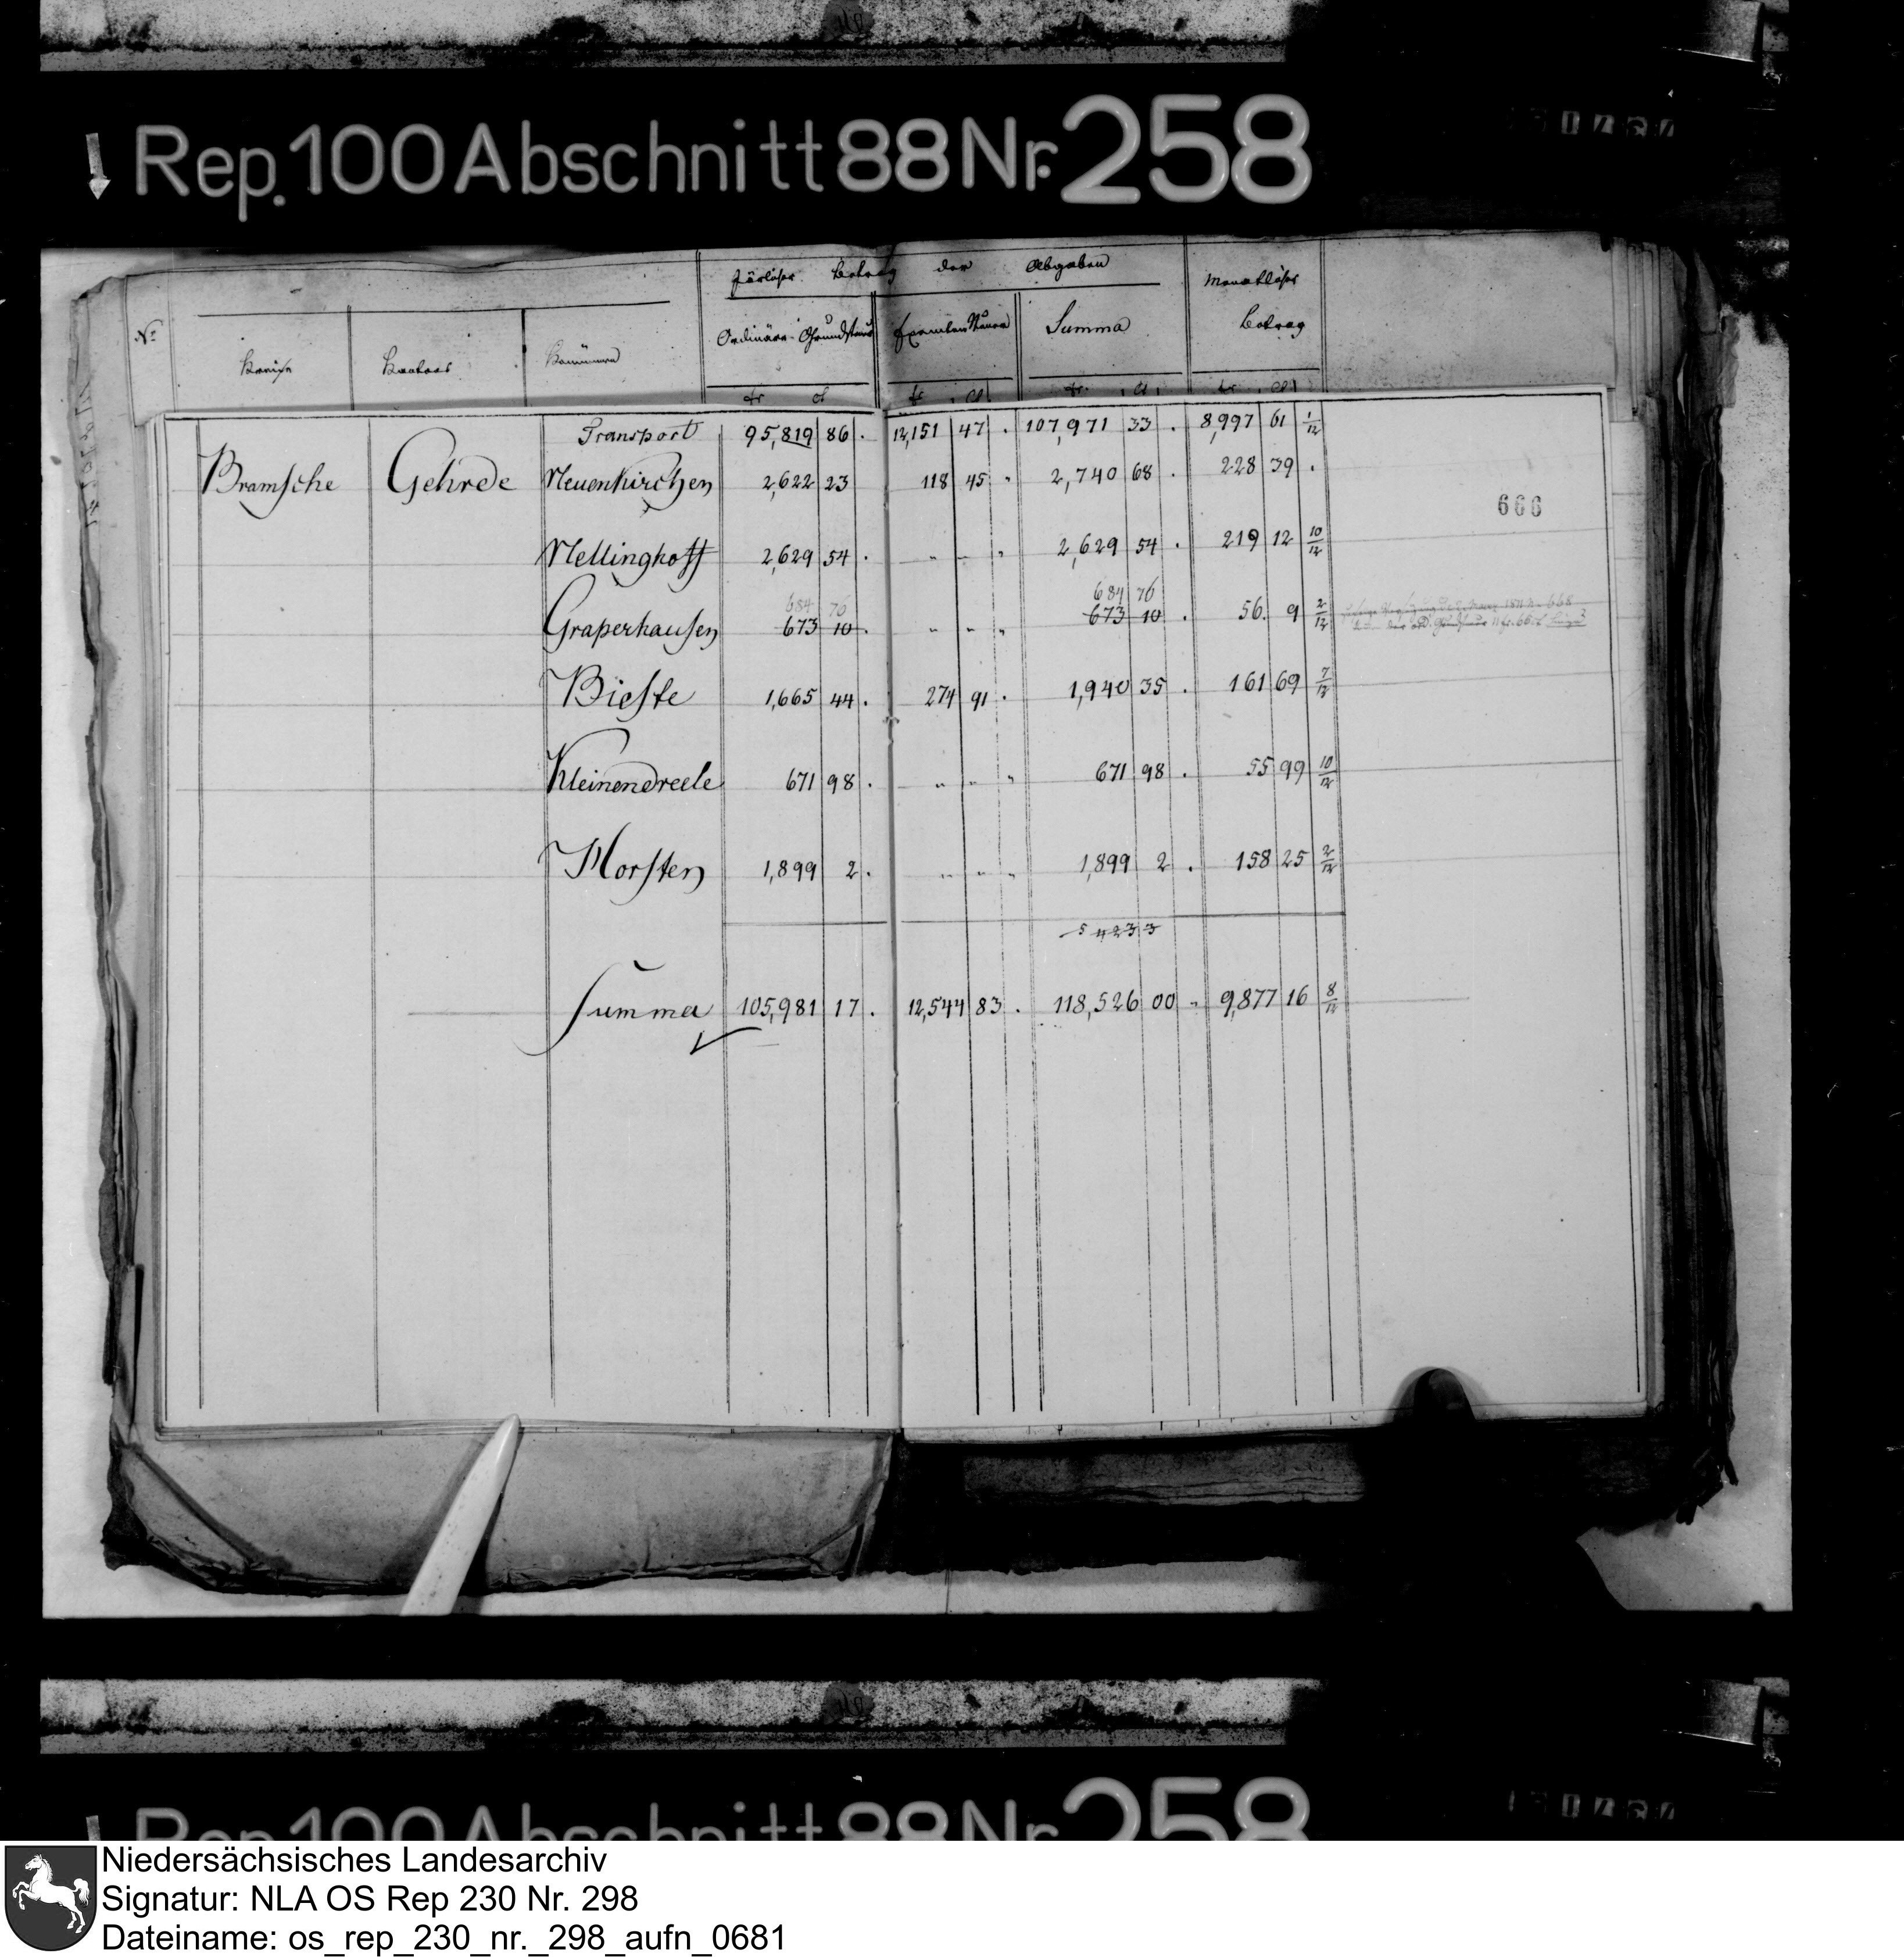 Rep. 100 Abschnitt 88 Nr. 258
Betrag der Abgaben
Monatlicher
No. Ordinäre Grundsteuer Summa Betrag
Kreise Kantons
fr. ct. fr. ct. fr. ct. fr. ct.
Transport 95,819 86 . 12,151 47 . 107,971 33 . 8,997 61 1/12
Bramsche Gehrde Neuenkirchen 2,622 23 118 45 " 2,740 68 . 228 39 .
666
Nellinghoff 2,629 54 . " " " 2,629 54 . 219 12 10/12
684 76 684 76
Graperhausen 673 10 . " " " 673 10 . 56. 9 2/12
Bieste 1,665 44 . 274 91 . 1,940 35 . 161 69 7/12
Kleinendreele 671 98 . " " " 671 98 . 55 99 10/12
Horsten 1,899 2 . " " " 1,899 2 . 158 25 2/12
5 423 3
Summa 105,981 17 . 12,544 83 . 118,526 00 " 9,877 16 8/12
Rep. 100 Abschnitt 88 Nr. 258
Niedersächsisches Landesarchiv
Signatur: NLA OS Rep 230 Nr. 298
Dateiname: os_rep_230_nr._298_aufn_0681